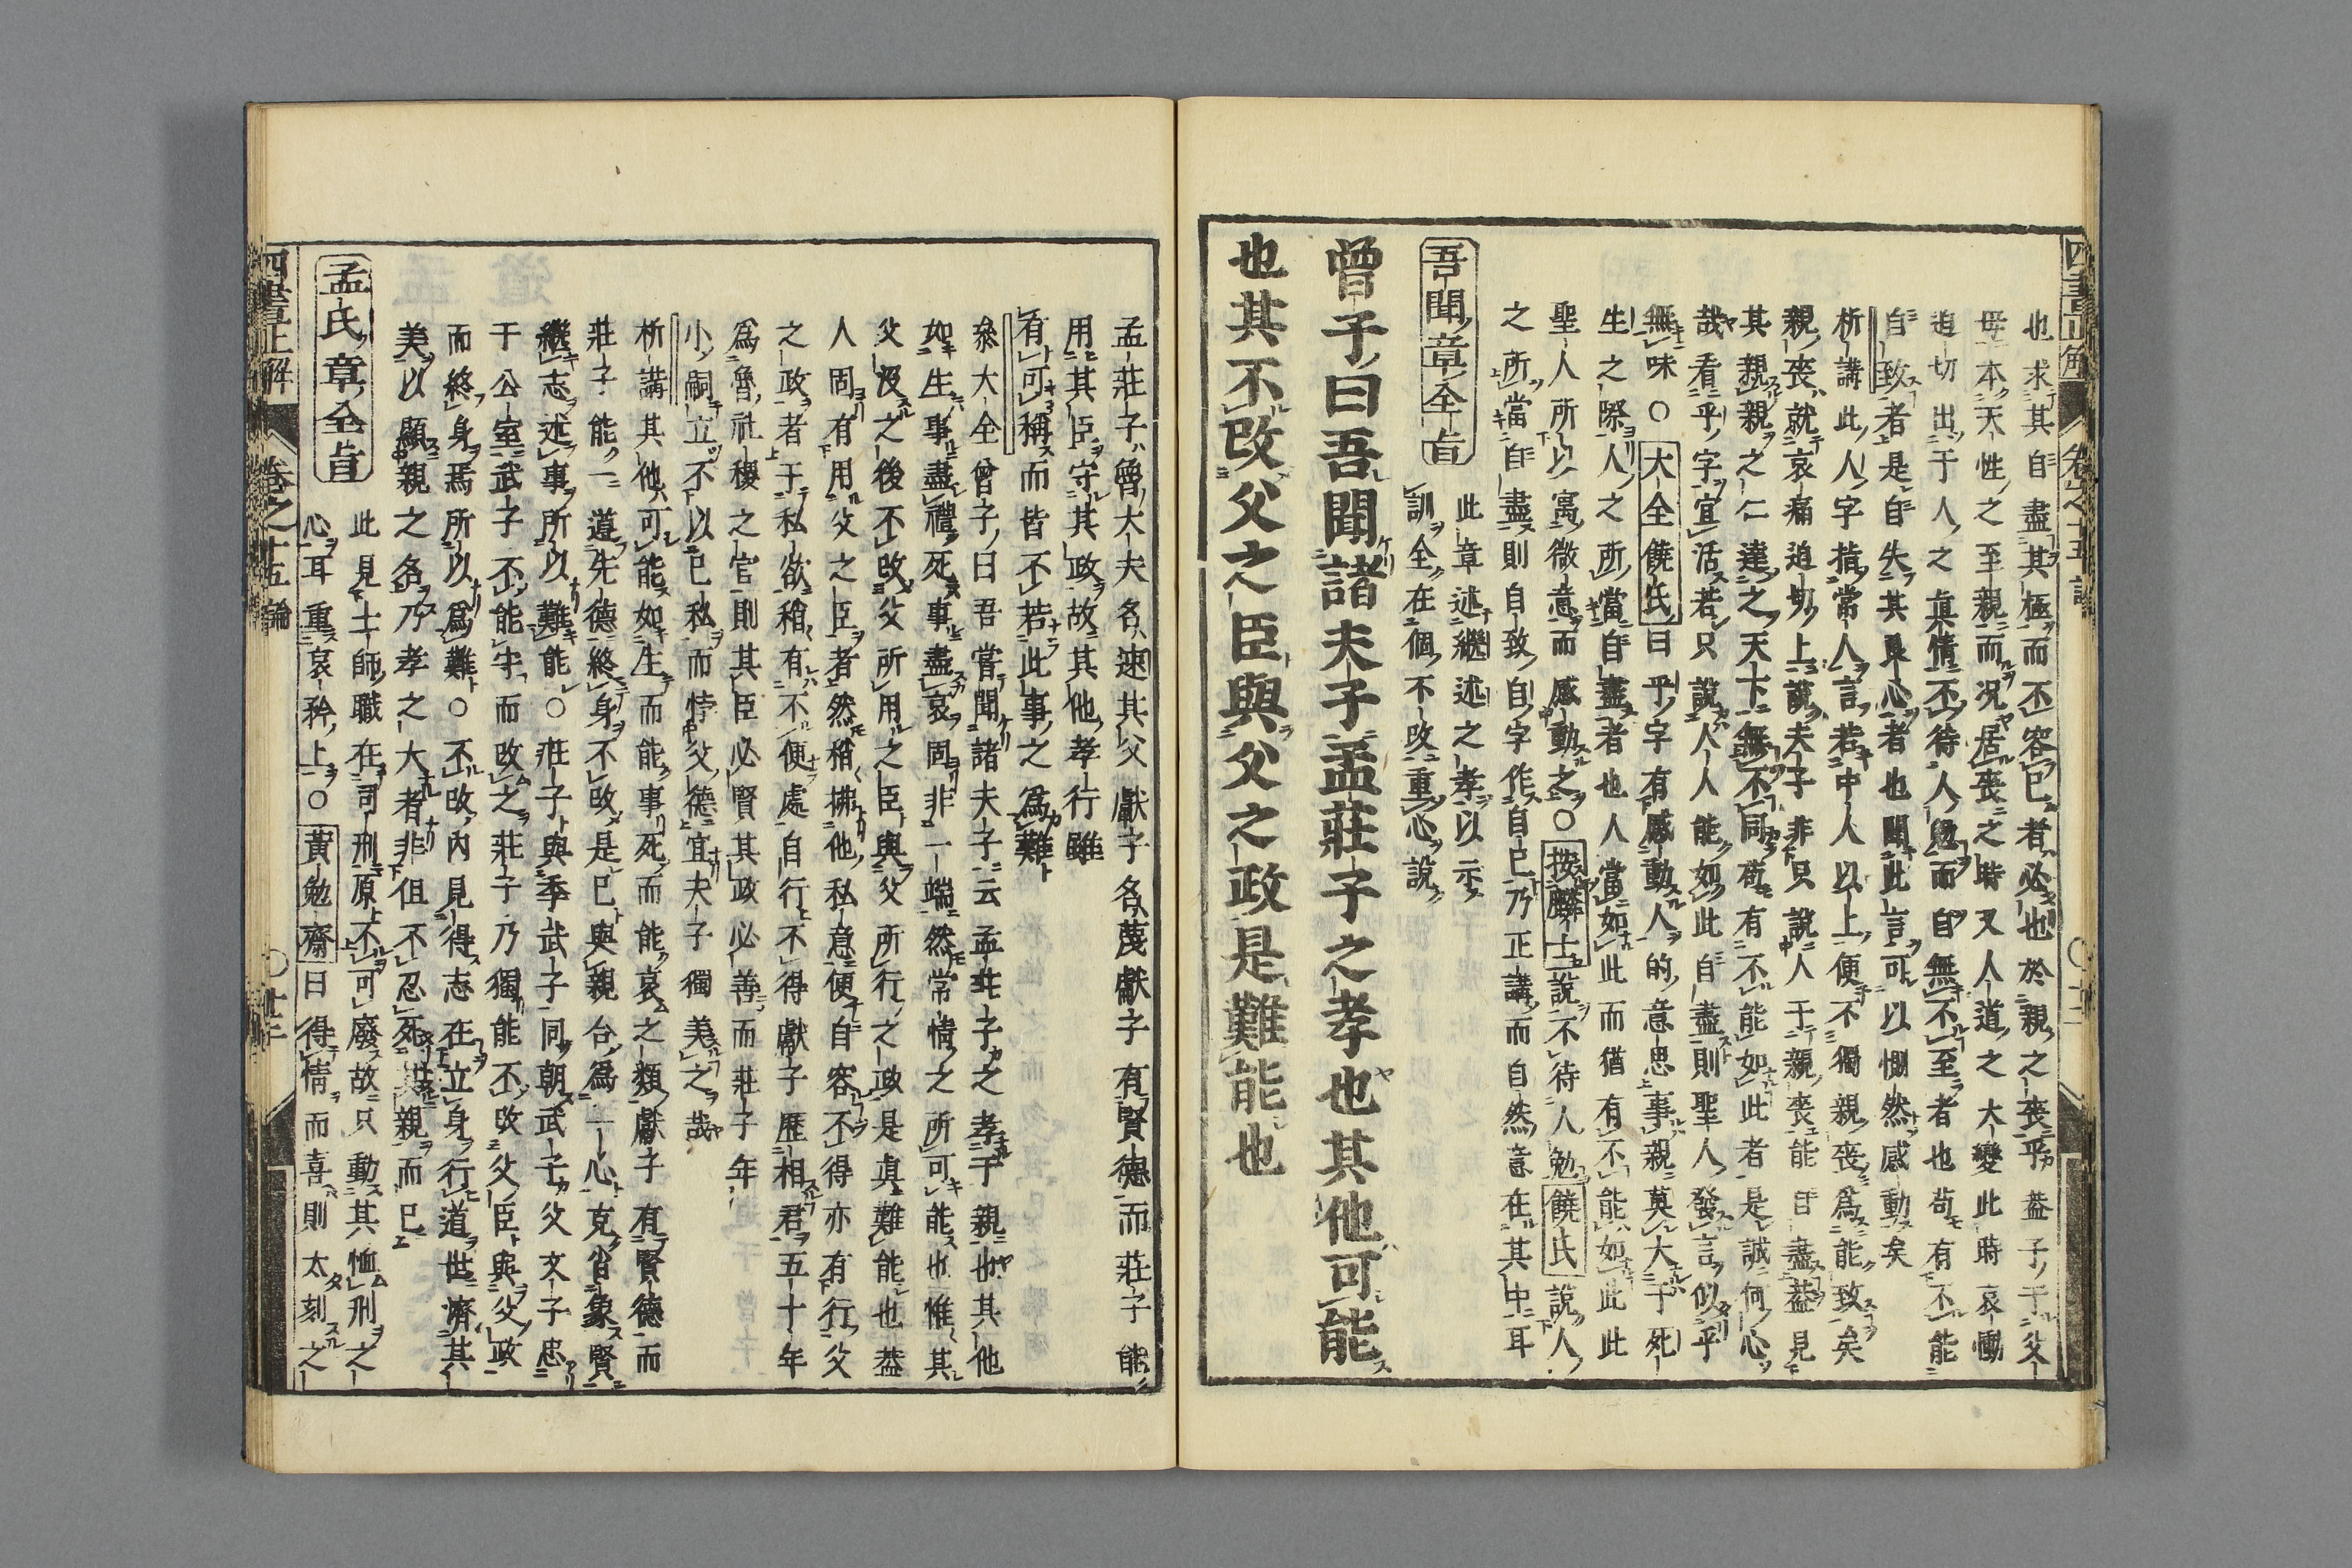 也求其自盡其極而不容已者必也於親之喪乎蓋子于父
母本天性之至親而况居喪之時又人道之大變此時哀慟
迫切出于人之真情不待人勉而自無不至者也苟有不能
自致者是自失其良心者也聞此言可以惻然感動矣
析講此人字指常人言若中人以上便不獨親喪爲能致矣
親喪就哀痛迫切上說夫子非只說人于親喪能自盡蓋見
其親親之仁達之天下無不同苟有不能如此者是誠何心
哉看乎字宜活若只說人人能如此自盡則聖人發言似乎
無味○大全饒氏曰乎字有感動人的意思事親莫大于死
生之際人之所當自盡者也人當如此而猶有不能如此此
聖人所以寓微意而感動之○按麟士說不待人勉饒氏說人
之所當自盡則自致自字作自已乃正講而自然意在其中耳
吾聞章全旨
此章述繼述之孝以示
訓全在個不改重心說
曾子曰吾聞諸夫子孟莊子之孝也其他可能
也其不改父之臣與父之政是難能也
四書正解
卷之十五論
孟莊子魯大夫名速其父獻子名蔑獻子有賢德而莊子能
用其臣守其政故其他孝行雖
有可稱而皆不若此事之爲難
叅大全曾子曰吾嘗聞諸夫子云孟莊子之孝于親也其他
如生事盡禮死事盡哀固非一端然常情之所可能也惟其
父沒之後不改父所用之臣與父所行之政是真難能也蓋
人固有用父之臣者然稍拂他私意便自容不得亦有行父
之政者于私欲稍有不便處自行不得獻子歷相君五十年
爲魯社稷之官則其臣必賢其政必善而莊子年
小嗣立不以已私而悖父德宜夫子獨美之哉
析講其他可能如生而能事死而能哀之類獻子有賢德而
莊子能一遵先德終身不改是已與親合爲一心克肖象賢
繼志述事所以難能○莊子與季武子同朝武子父文子忠
于公室武子不能守而改之莊子乃獨能不改父臣與父政
而終身焉所以爲難○不改內見得志在立身行道世濟其
美以顯親之名乃孝之大者非但不忍死其親而已
孟氏章全旨
此見士師職在司刑原不可廢故只動其恤刑之
心耳重哀矜上○黃勉齋曰得情而喜則太刻之
四書正解
卷之十五論